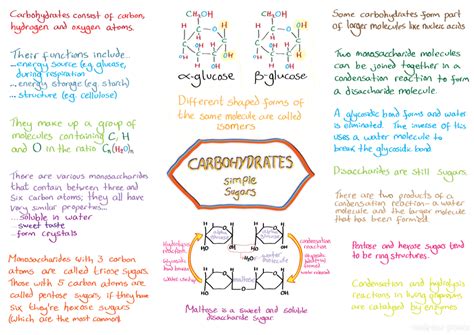 Carbohydrates consist of carbon,
hydrogen and oxygen atoms.
Their functions include...
...energy source (e.g. glucose,
during respiration
... energy storage (e.g. starch)
... structure (e.g. cellulose)
They make up a group of
molecules containing C, H
and O in the ratio Cn(H2O)n
There are various monosaccharides
that contain between three and
six carbon atoms; they all have
very similar properties...
...soluble in water
sweet taste
form crystals
Monosaccharides with 3 carbon
atoms are called triose sugars.
Those with 5 carbon atoms are
called pentose sugars if they have
six they're hexose sugars
(which are the most common).
CH2OH
CH2OH
α-glucose
β-glucose
Different shaped forms of
the same molecule are called
isomers
CARBOHYDRATES
simple
sugars
hydrolysis
reaction
condensation
reaction
water
molecule
maltose
Maltose is a sweet and soluble
disaccharide sugar.
Some carbohydrates form part
of larger molecules like nucleic acids
Two monosaccharide molecules
can be joined together in a
condensation reaction to form
a disaccharide molecule.
A glycosidic bond forms and water
is eliminated. The inverse of this
uses a water molecule to
break the glycosidic bond
Disaccharides are still sugars.
There are two products of a
condensation reaction - a water
molecule, and the larger molecule
that has been formed.
Pentose and hexose sugars tend
to be ring structures.
Condensation and hydrolysis
reactions in living organisms
are catalysed by enzymes